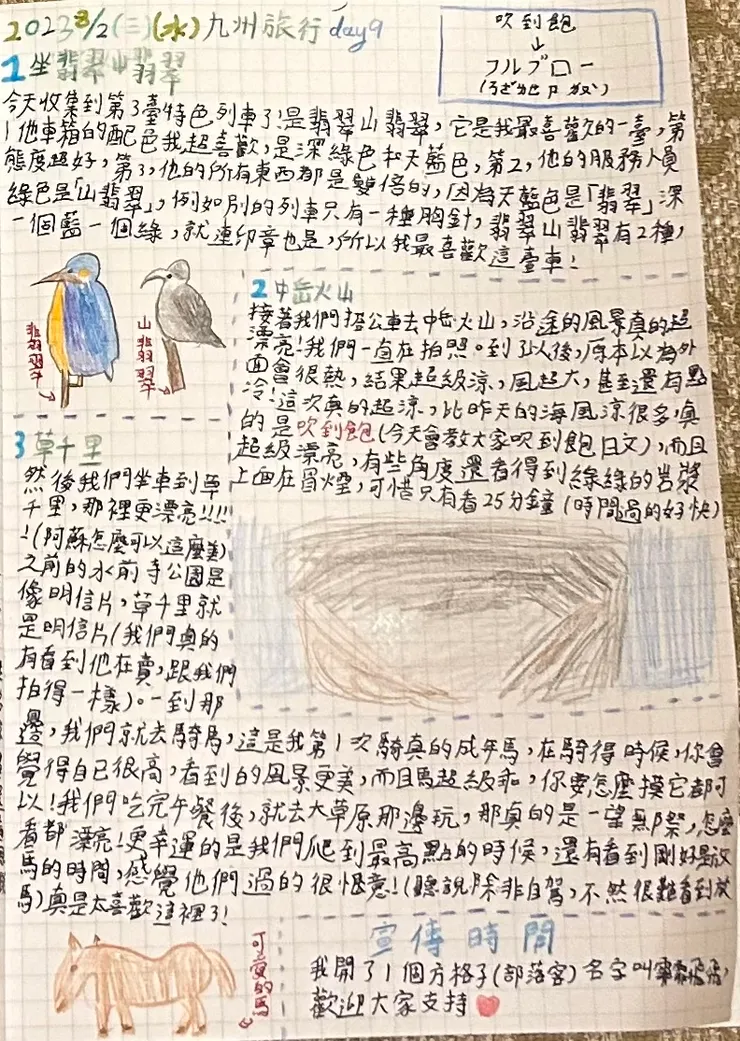 2023 8/2(三)(水)九州旅行 day9
吹到飽
↓
フルブロー
1 坐翡翠山翡翠
今天收集到第3臺特色列車了!是翡翠山翡翠,它是我最喜歡的一臺,第
1他車箱的配色我超喜歡,是深綠色和天藍色,第2,他的服務人員
態度超好,第3,他的所有東西都是雙倍的,因為天藍色是「翡翠」深
綠色是「山翡翠」,例如別的列車只有一種胸針,翡翠山翡翠有2種,
一個藍一個綠,就連印章也是,所以我最喜歡這臺車!
翡翠
山翡翠
2 中岳火山
接著我們搭公車去中岳火山,沿途的風景真的超
漂亮!我們一直在拍照。到了以後,原本以為外
面會很熱,結果超級涼,風超大,甚至還有點
冷!這次真的超涼,比昨天的海風涼很多,真
的是吹到飽(今天會教大家吹到飽日文),而且
超級漂亮,有些角度還看得到綠綠的岩漿
上面在冒煙,可惜只有看25分鐘(時間過的好快)
3 草千里
然後我們坐車到草
千里,那裡更漂亮!!!!
!(阿蘇怎麼可以這麼美)
之前的水前寺公園是
像明信片,草千里就
是明信片(我們真的
有看到他在賣,跟我們
拍得一樣)。一到那
邊,我們就去騎馬,這是我第1次騎真的成年馬,在騎得時候,你會
覺得自己很高,看到的風景更美,而且馬超級乖,你要怎麼摸它都可
以!我們吃完午餐後,就去大草原那邊玩,那真的是一望無際,怎麼
看都漂亮!更幸運的是我們爬到最高點的時候,還有看到剛好是放
馬的時間,感覺他們過的很愜意!(聽說除非自駕,不然很難看到放
馬)真是太喜歡這裡了!
可愛的馬
宣傳時間
我開了1個方格子(部落客)名字叫
歡迎大家支持